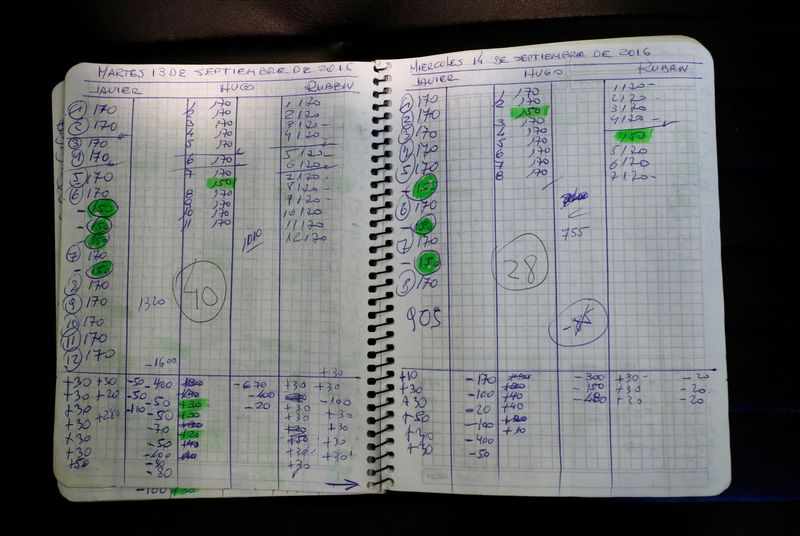 MARTES 13 DE SEPTIEMBRE DE 2016
JAVIER HUGO RUBEN
1 170 1 170 1 120
2 170 2 170 2 120
3 170 3 170 3 120
4 170 4 170 4 120
5 170 5 170 5 120
6 170 6 170 6 120
- 150 7 170 7 120
- 150 150 8 120
150 8 170 9 120
7 170 9 170 10 120
- 150 10 170 11 120
8 170 11 170 12 120
9 170 1010
10 170 1320
11 170 40
12 170
-1600
+30
+30 +30 -50 -400 -670 +30 +30
+30 +20 -50 -400
+30 -110 -50 -20 +30 -100
+30 +280 -50 +30 +30
+30 -70 +30
+30 -50 +30
+50 -80 +30
-100 +30
MIERCOLES 14 DE SEPTIEMBRE DE 2016
JAVIER HUGO RUBEN
1 170 1 170 1 120
2 170 2 170 2 120
3 170 150 3 120
4 170 3 170 4 120
5 170 4 170 150
+ 150 5 170 5 120
6 170 6 170 6 120
- 150 7 170 7 120
7 170 8 170
- 150 755
8 170 28
905
+10 -170 -300 +30 -20
+30 -100 +40 -150 +30 -20
+30 -20 +40 -480 +30 -20
+50 -100
-400 +10
+30 -50